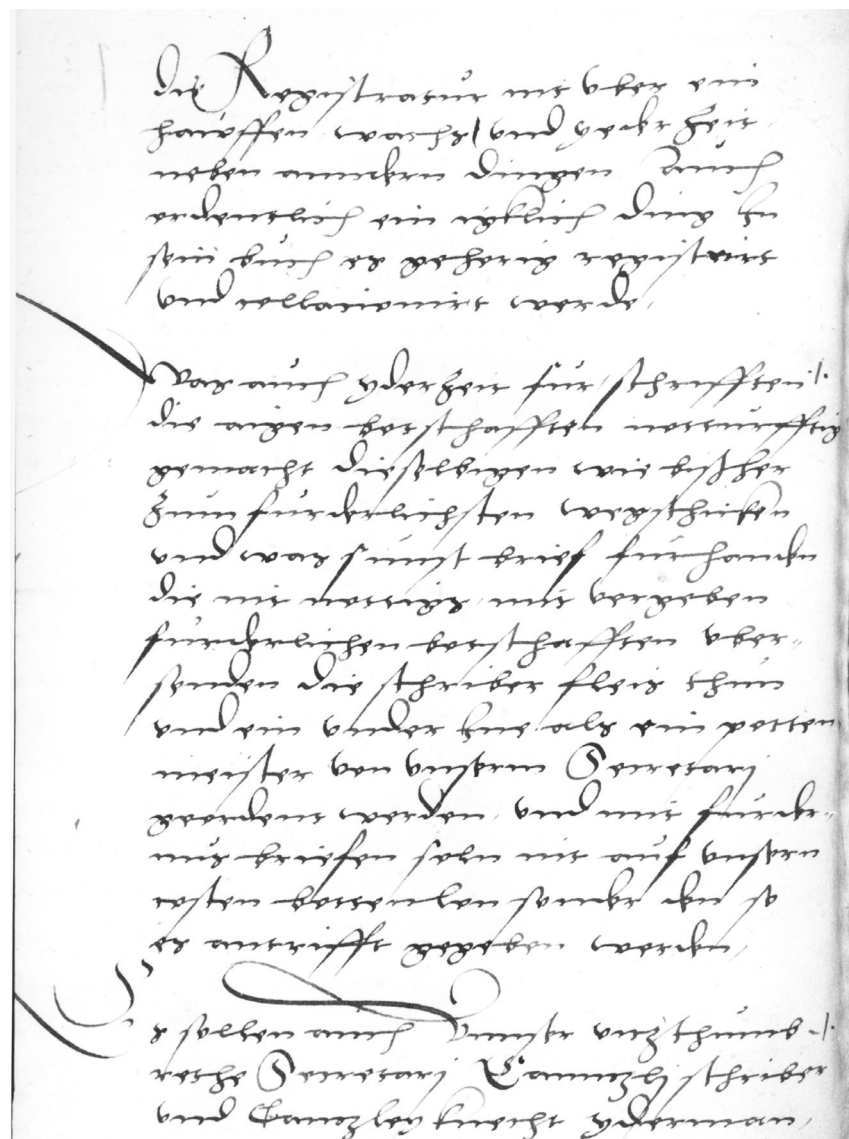 die Registratur nit vber ein
hauffen wachs / vnd yeder Zeit
neben anndern dingen auch
ordentlich ein iglich ding zu
sein buch es geherig registrirt
vnd collacionirt werde,
Was auch yderZeit fur schrifften
die aigen botschafften notturfftig
gemacht dieselbigen wie bißher
Zum furderlichsten wegschicken
vnd was sunst brief furhanden
die nit nottigs mit vergeben
furderlichen botschafften vber-
senden die schriber fleis thun
vnd ein vnder Ine als ein potten
meister von vnserm Secretarj
geordent werden, vnd mit furder-
nus briefen soln nit auf vnsern
costen bottenlon sonder den so
es antrifft gegeben werden,
Es sollen auch vnnser
rethe Secretarj Canntzlj schriber
vnd Cantzley knecht yderman,